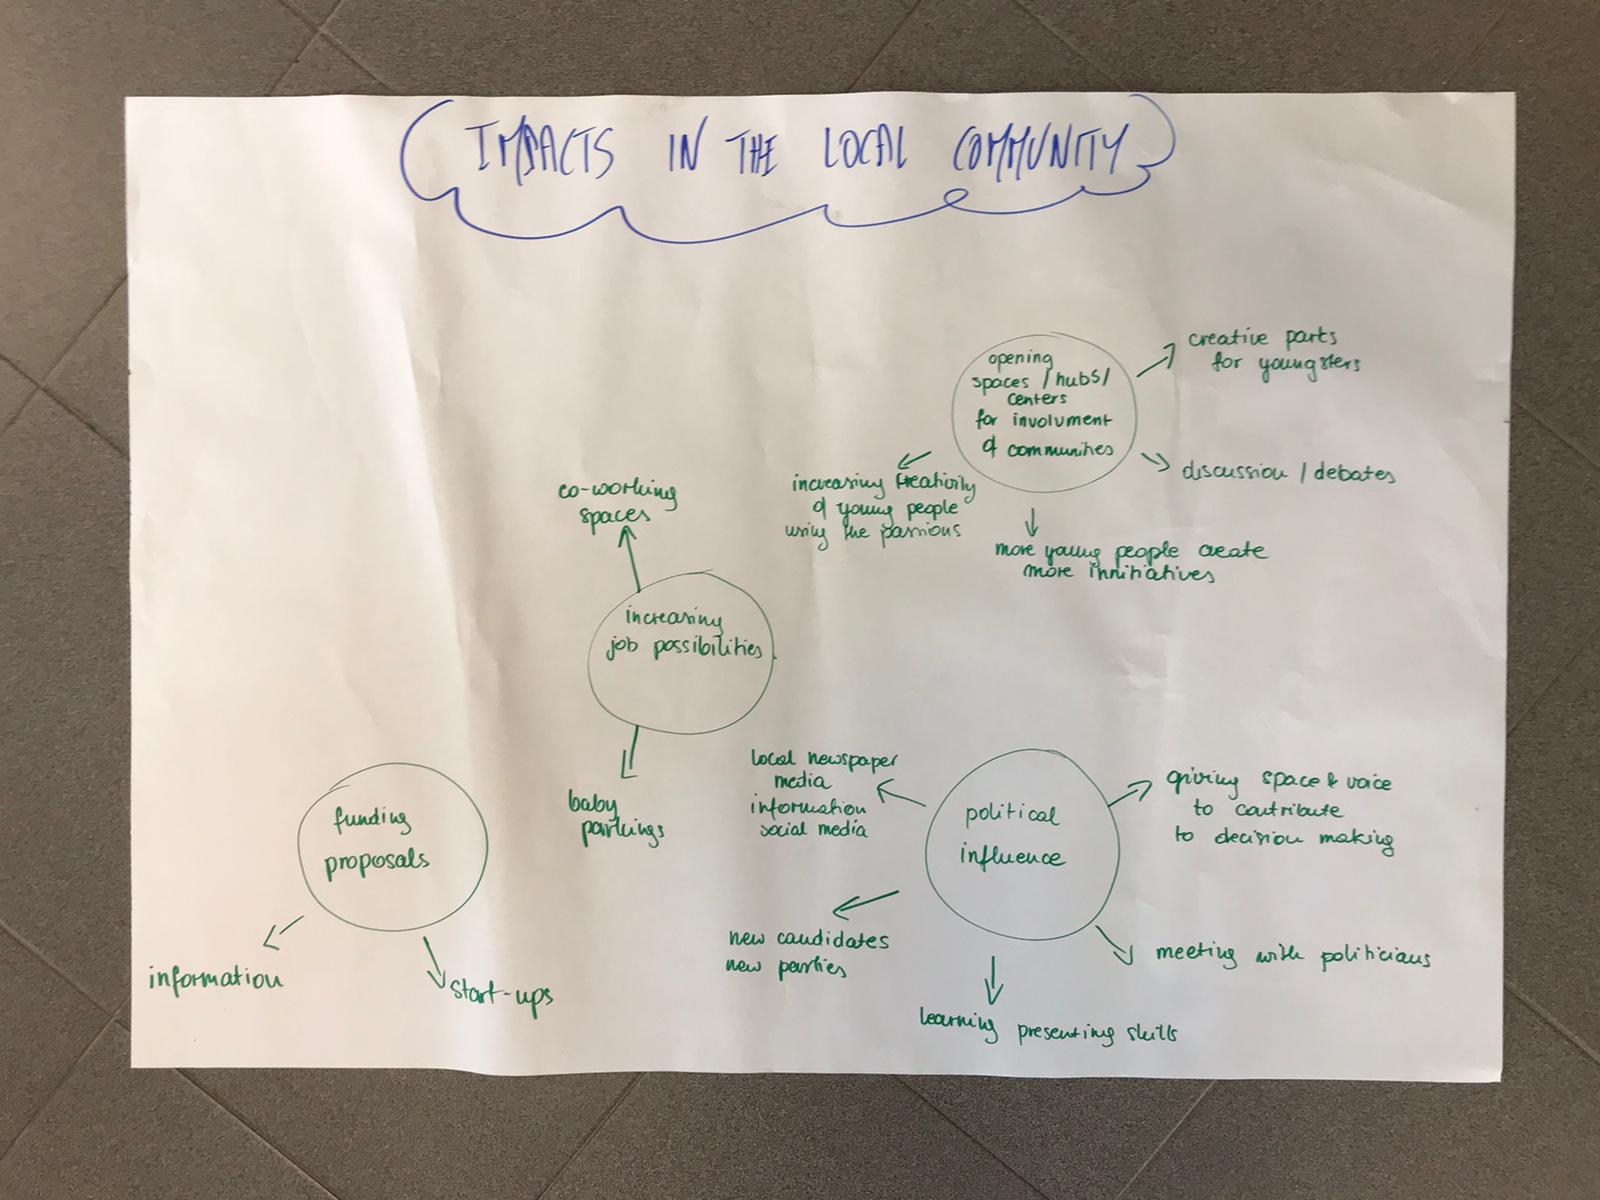 IMPACTS IN THE LOCAL COMMUNITY
opening
spaces / hubs /
centers
for involvment
of communities
creative parts
for youngsters
discussion / debates
more young people create
more innitiatives
increasing creativity
of young people
using the passions
co-working
spaces
increasing
job possibilities
baby
parkings
funding
proposals
information
start-ups
political
influence
local newspaper
media
information
social media
giving space & voice
to contribute
to decision making
new candidates
new parties
meeting with politicians
learning presenting skills